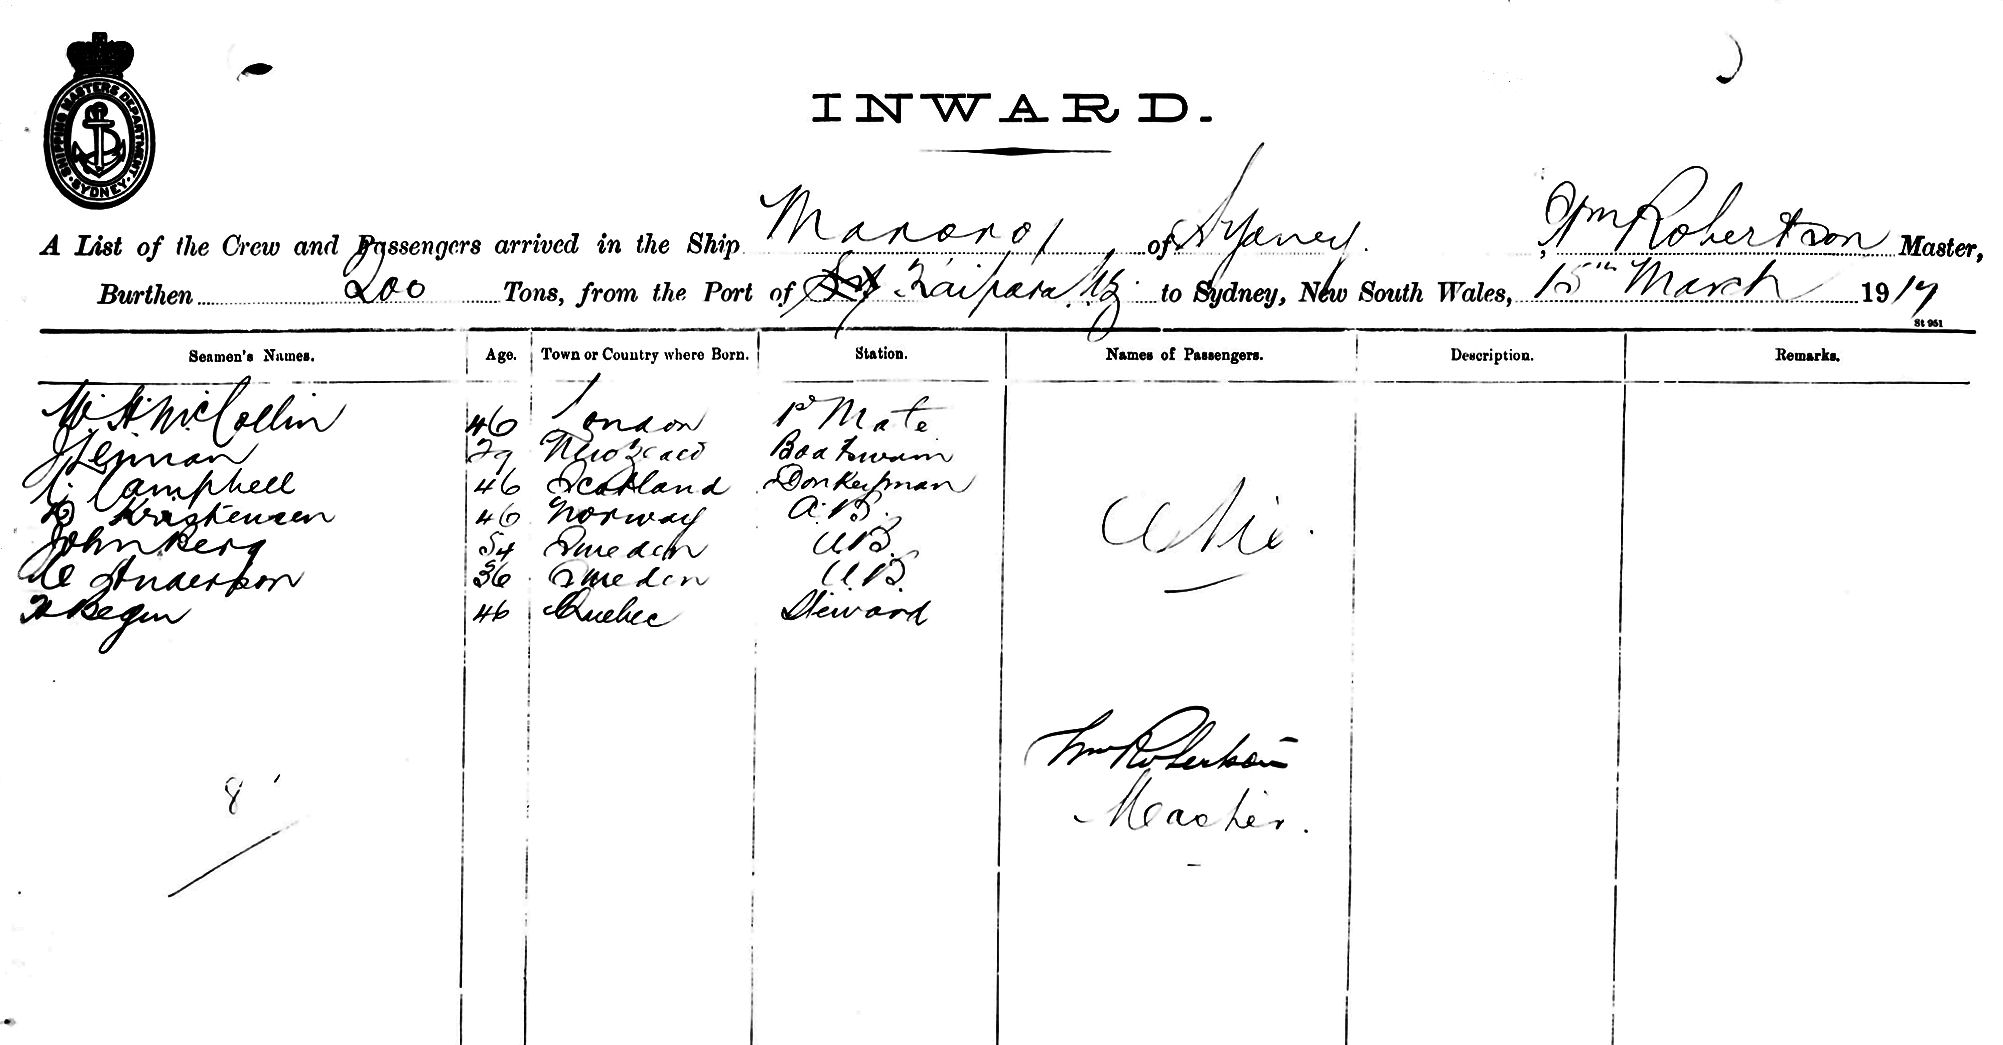 SHIPPING MASTERS DEPARTMENT
SYDNEY
INWARD.
A List of the Crew and Passengers arrived in the Ship of Sydney. Wm Robertson Master,
Burthen 200 Tons, from the Port of Kaipara NZ. to Sydney, New South Wales, 15th March 1917
St 951
Seamen's Names. Age. Town or Country where Born. Station. Names of Passengers. Description. Remarks.
W. H. McCollin 46 London 1st Mate
29 New Zead Boatswain
Campbell 46 Scotland Donkeyman
Kristensen 46 Norway A.B.
John Berg 54 Sweden AB.
Anderson 36 Sweden A.B.
46 Quebec Steward
Nil.
Wm Robertson
Master.
8